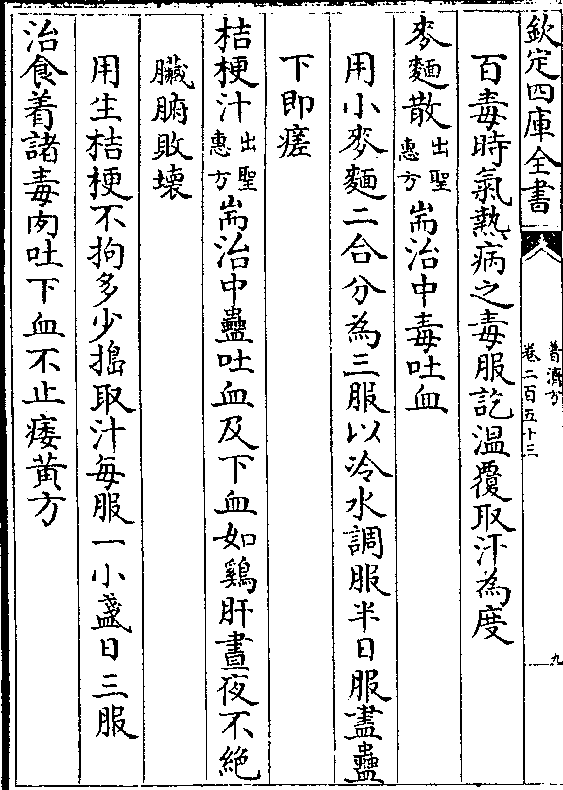 欽定四庫全書
普濟方
卷二百五十三
九
百毒時氣熱病之毒服訖溫覆取汗為度
麥麵散出聖惠方耑治中毒吐血
用小麥麵二合分為三服以冷水調服半日服盡蠱
下即瘥
桔梗汁出聖惠方耑治中蠱吐血及下血如鷄肝晝夜不絶
臟腑敗壞
用生桔梗不拘多少搗取汁每服一小盞日三服
治食着諸毒肉吐下血不止痿黃方